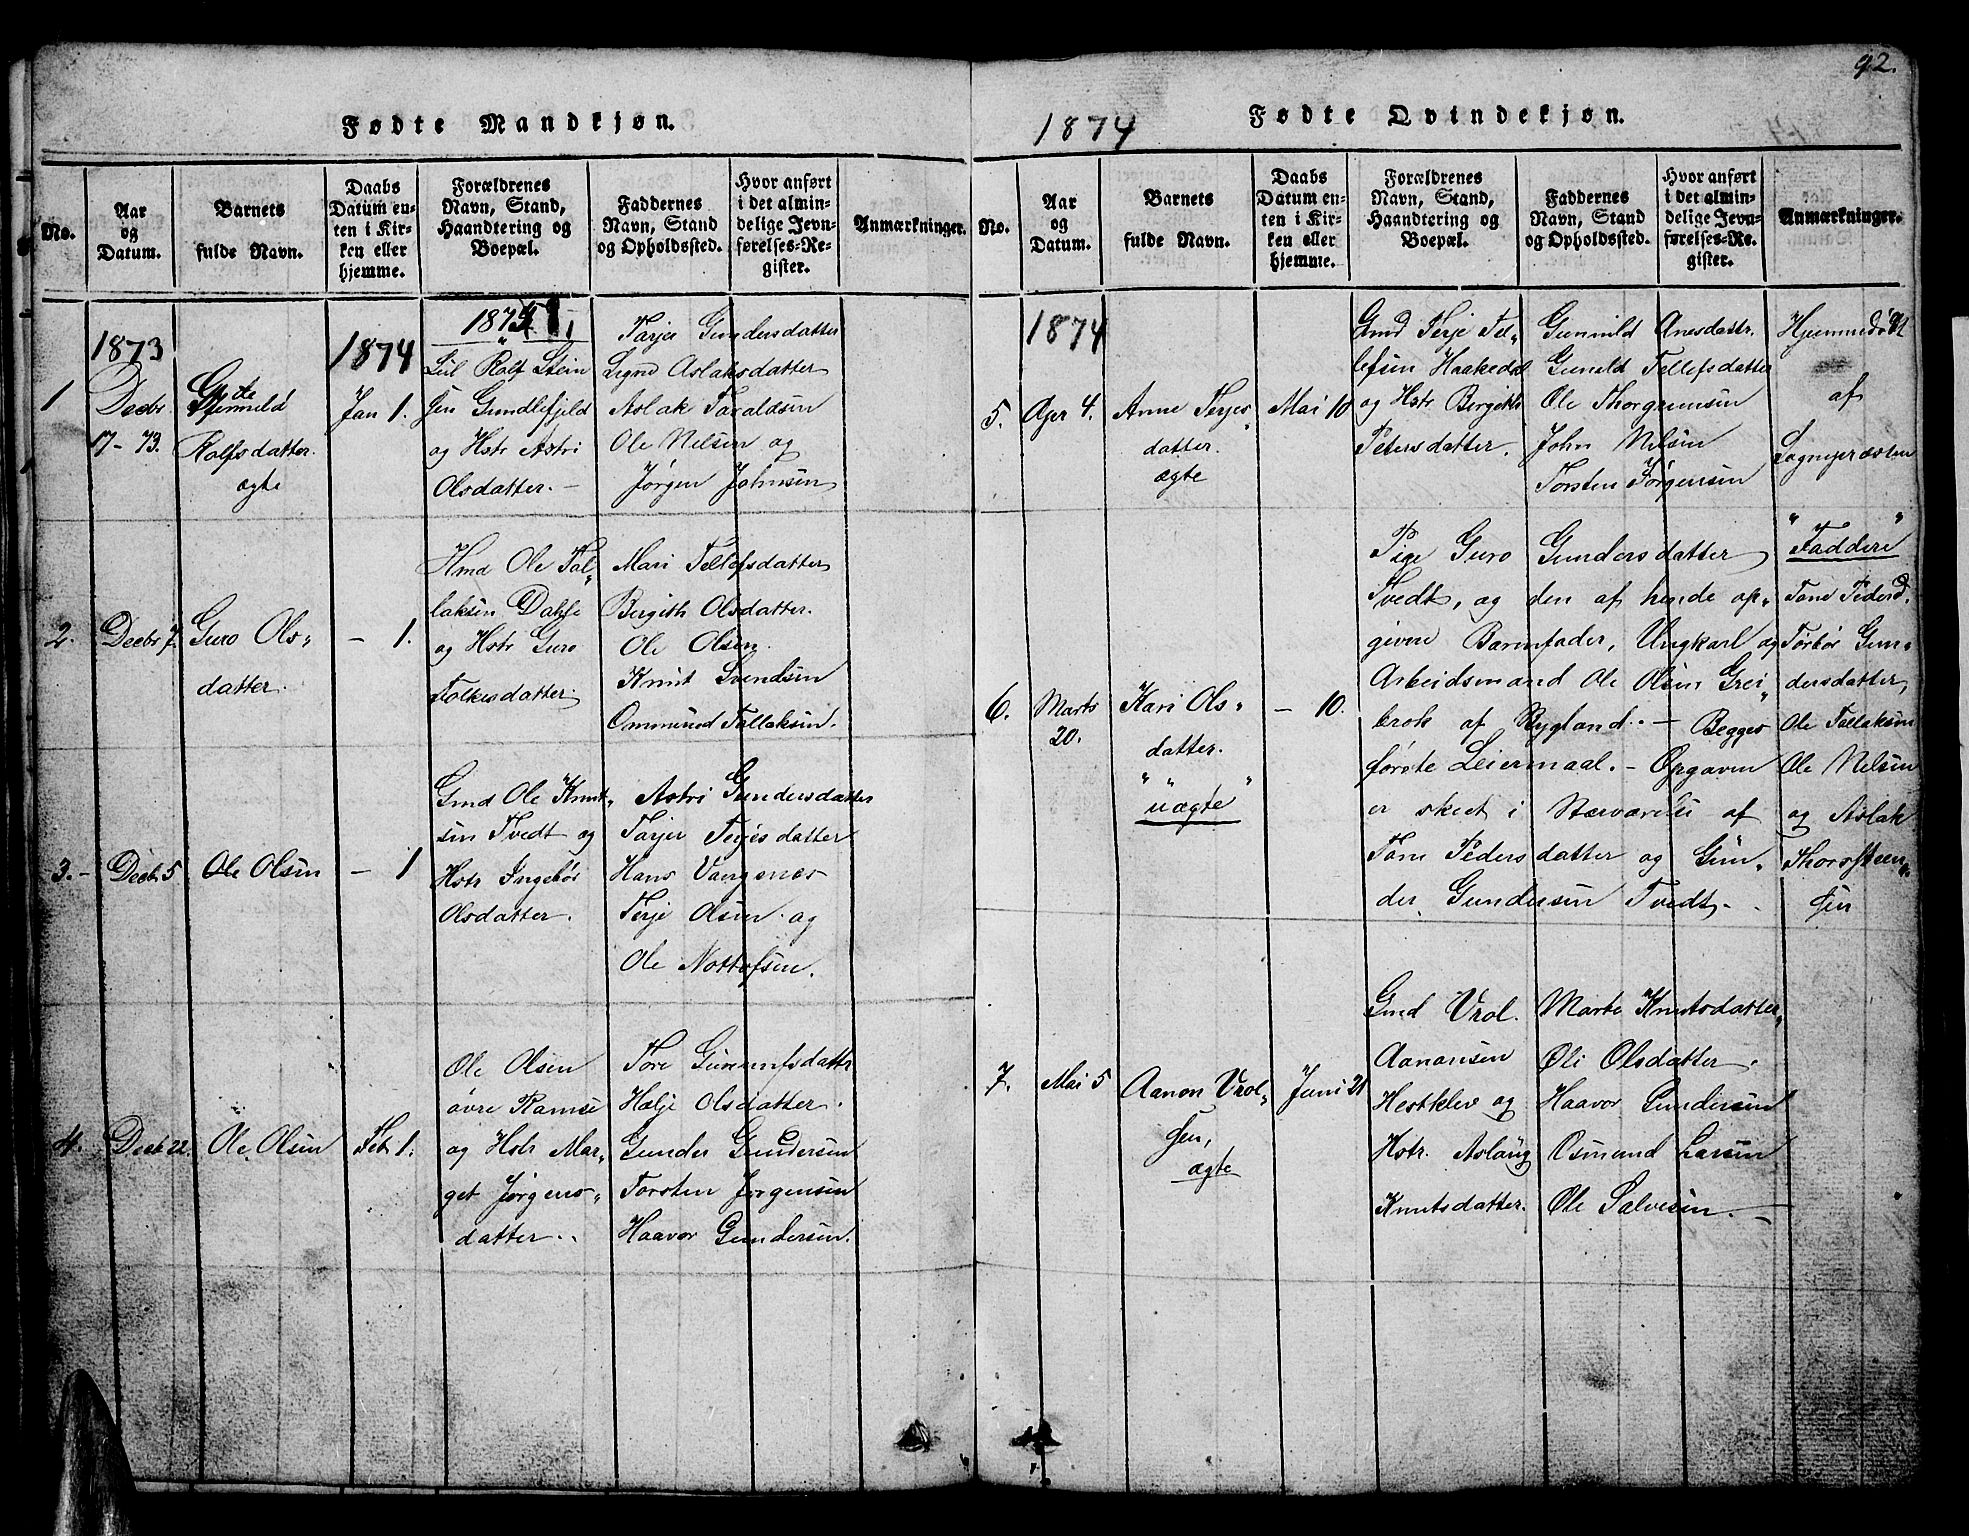 92.
Fødte Mandkjøn.
No.
Aar
og
Datum.
Barnets
fulde Navn.
Daabs
Datum en-
ten i Kir-
ken eller
hjemme.
Forældrenes
Navn, Stand,
Haandtering og
Boepæl.
Faddernes
Navn, Stand
og Opholdssted.
Hvor anført
i det almin-
delige Jevn-
førelses-Re-
gister.
Anmærkninger.
1
1873
Decbr.
17-73.
Rolfsdatter.
ægte
1874
Jan 1.
Rolf Stein
sen Gundlefjeld
og Hstr Astri
Olsdatter. -
Tarjer Gundersdatter
Signe Aslaksdatter
Aslak Taraldsen
Ole Nelsen og
Jørgen Johnsen
2.
Decbr 7.
Guro Ols„
datter.
- 1.
Ole Tal„
laksen Dahle
og Hstr Guro
Folkesdatter
Mari Tellefsdatter
Bergith Olsdatter.
Ole Olsen.
Knut Svendsen
Ommund Tallaksen.
3. -
Decbr 5
Ole Olsen
- 1
Gmd Ole Knut„
sen Tvedt og
Hstr Ingebor
Olsdatter.
Astri Gundersdatter
Tarjer Terjesdatter
Hans Vangenæs
Terje Olsen. og
Ole Nottofsen.
4.
Decbr 22.
Ole Olsen
Feb 1.
Ole Olsen
øvre Ramse
og Hstr Mar„
get Jørgens„
datter..
Tore Gunnufsdattr
Hælje Olsdatter.
Gunder Gundersen
Torsten Jørgensen
Haavor Gundersen.
1874
Fødte Qvindekjøn.
No.
Aar
og
Datum.
Barnets
fulde Navn.
Daabs
Datum en-
ten i Kir-
ken eller
hjemme.
Forældrenes
Navn, Stand,
Haandtering og
Boepæl.
Faddernes
Navn, Stand
og Opholdssted.
Hvor anført
i det almin-
delige Jevn-
førelses-Re-
gister.
Anmærkninger.
1874
5.
Apr 4.
Anne Terjes„
datter.
ægte
Mai 10
Gmd Terje Tel„
lefsen Haakedal
og Hstr Bergith
Petersdatter.
Gunnild Anesdattr.
Gunild Tellefsdatter
Ole Thorgrensen
John Nelsen
Torsten Jørgensen
Hjemmedøbt
af
Sognepræsten
6.
Marts
20.
Kari Ols„
datter.
"uægte"
- 10.
Pige Guro Gundersdatter
Tvedt, og den af hende op„
givne Barnefader, Ungkarl og
Arbeidsmand Ole Olsen Grei„
brok af Rygland. - Begges
første Leiermaal. - Opgaven
er skeet i Nærværelse af
Tone Pedersdatter og Gun„
der Gundersen Tvedt.
"Faddere"
Tone Pedersd.
Torbor Gun„
dersdatter,
Ole Tallaksen
Ole Nelsen
og Aslak
Thorsteen„
sen
7.
Mai 5
Aanon Vrol„
sen,
ægte
Juni 21
Gmd Vrol.
Aanonsen
Hestklev og
Hstr. Aslaug
Knutsdatter.
Marte Knutsdatter,
Oli Olsdatter.
Haavor Gundersen
Osmund Larsen
Ole Salvesen.